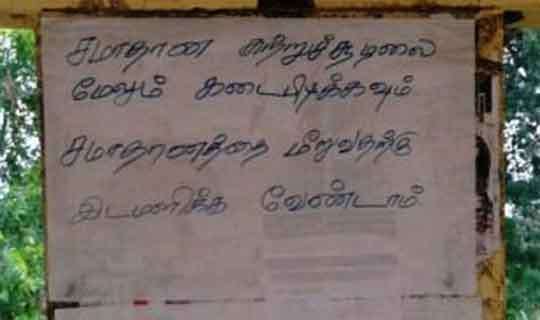 சமாதான சுற்றுச்சூழலை
மேலும் கடைபிடிக்கவும்
சமாதானத்தை மீறுவதற்கு
இடமளிக்க வேண்டாம்